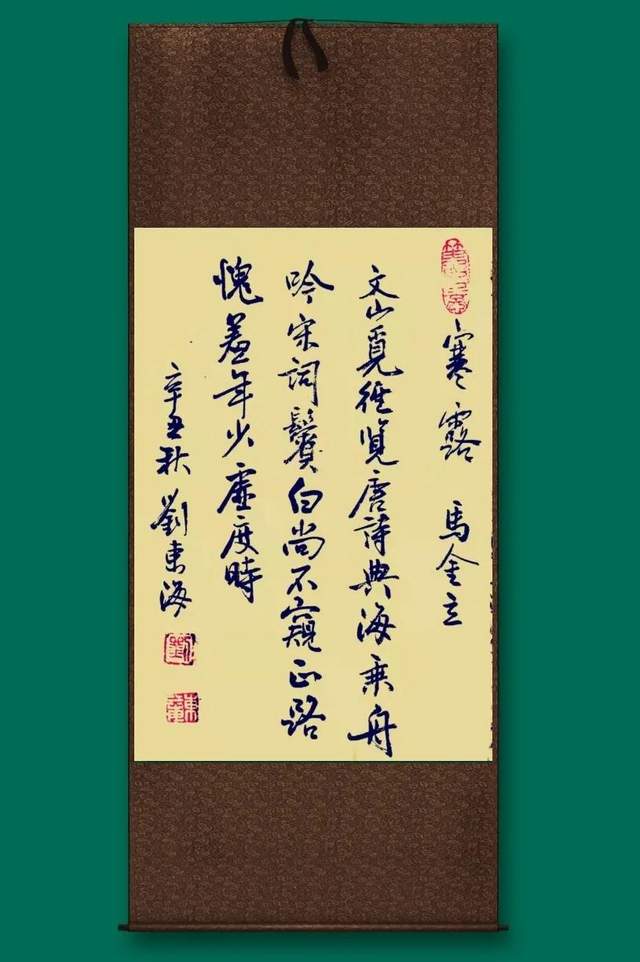 寒露 馬金立
文山覓徑覽唐詩典海乘舟
吟宋詞鬢白尚不窺正路
愧羞年少虛度時
辛丑秋 劉東海